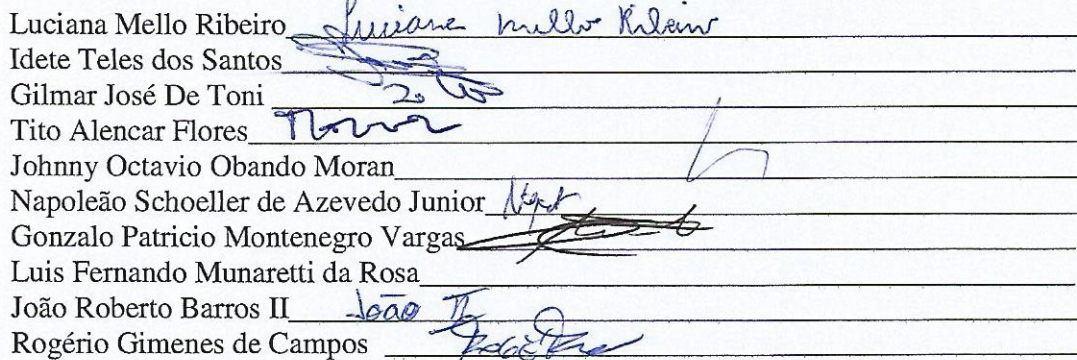 Luciana Mello Ribeiro Luciane Mello Ribeiro
Idete Teles dos Santos
Gilmar José De Toni
Tito Alencar Flores
Johnny Octavio Obando Moran
Napoleão Schoeller de Azevedo Junior
Gonzalo Patricio Montenegro Vargas
Luis Fernando Munaretti da Rosa
João Roberto Barros II João II
Rogério Gimenes de Campos